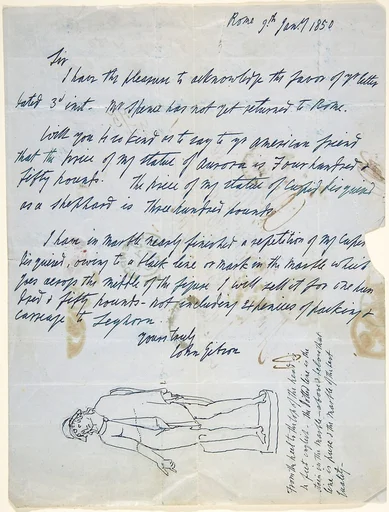 Rome 9th Jany 1850
Sir
I have the pleasure to acknowledge the favor of yr letter
dated 3d inst. Mr Spence has not yet returned to Rome.
Will you be so kind as to say to yr American friend
that the price of my statue of Aurora is Four hundred &
fifty pounds. The price of my statue of Cupid disguised
as a shepherd is Three hundred pounds
I have in marble nearly finished a repetition of my Cupid
disguised, owing to a black line or mark in the marble which
goes across the middle of the figure I will sell it for one hun
dred & fifty pounds - not including expences of packing &
carriage to Leghorn.
yours truly
John Gibson
From the heel to the top of the head is
feet english - the dotted line is the
stain in the marble - above & below that
line is pure & the marble of the best
quality -